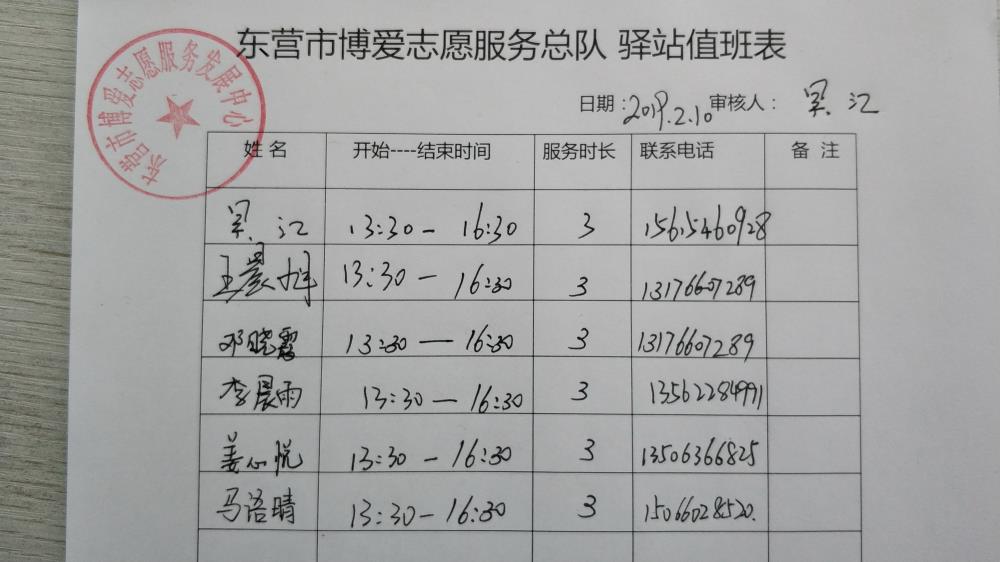 东营市博爱志愿服务总队 驿站值班表
东营市博爱志愿服务发展中心
日期:2019.2.10 审核人: 吴江
姓名 开始----结束时间 服务时长 联系电话 备注
吴江 13:30-16:30 3 15615460928
王晨旭 13:30-16:30 3 13176607289
邓晓霞 13:30-16:30 3 13176607289
李晨雨 13:30-16:30 3 13562284991
姜心悦 13:30-16:30 3 13506366825
马洛晴 13:30-16:30 3 15066028520.